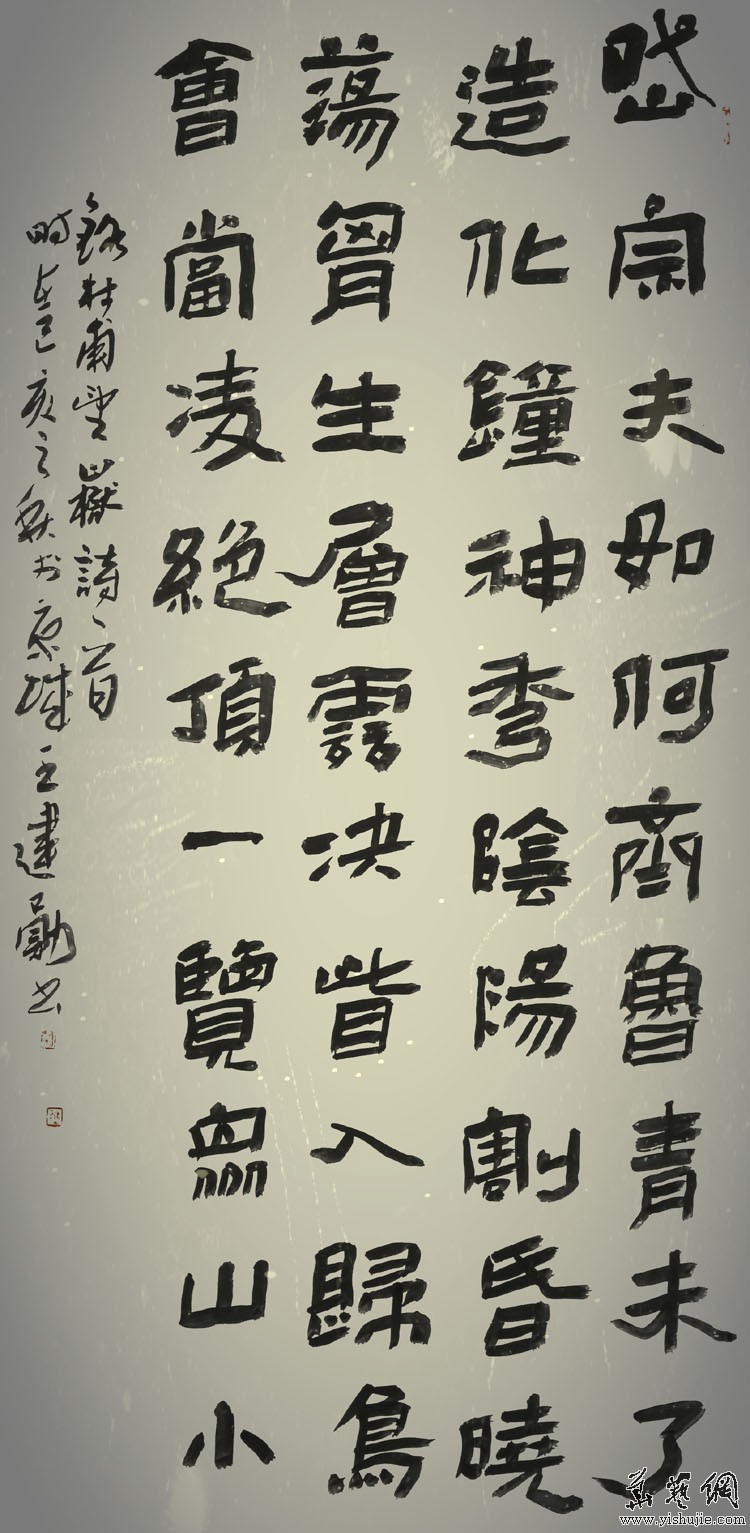 岱宗夫如何齊魯青未了
造化鐘神秀陰陽割昏曉
蕩胷生層雲决眥入歸鳥
會當凌絕頂一覽衆山小
錄杜甫望嶽詩一首
時在己亥之秋於京城王建勛書
華藝網
www.yishujie.com